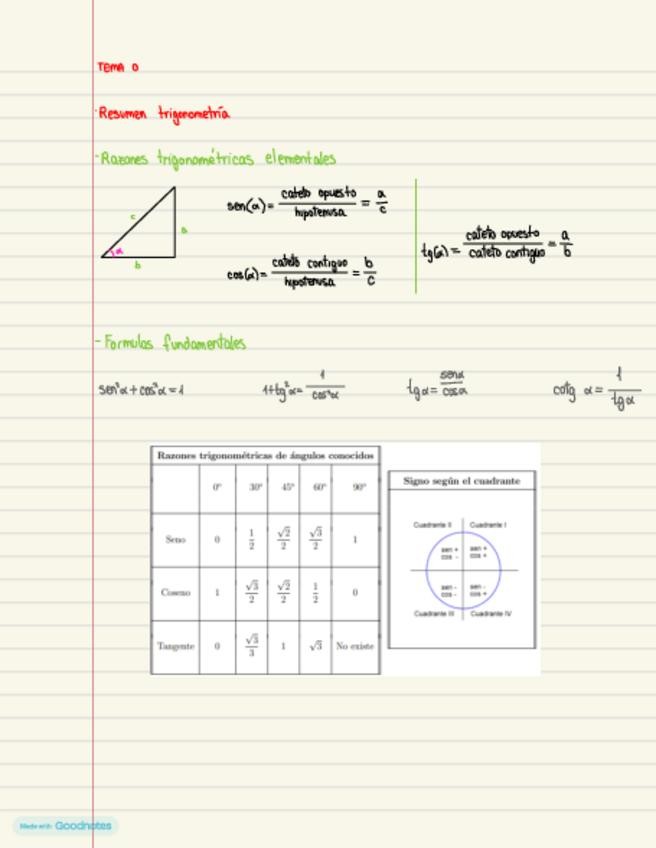 TEMA 0
·Resumen trigonometría
-Razones trigonométricas elementales
c
a
α
b
sen(α)= cateto opuesto / hipotenusa = a/c
cos(α)= cateto contiguo / hipotenusa = b/c
tg(α)= cateto opuesto / cateto contiguo = a/b
- Formulas fundamentales
sen²α + cos²α = 1
1+tg²α= 1 / cos²α
tgα= senα / cosα
cotg α= 1 / tgα
Razones trigonométricas de ángulos conocidos
0º 30º 45º 60º 90º
Seno 0 1/2 √2/2 √3/2 1
Coseno 1 √3/2 √2/2 1/2 0
Tangente 0 √3/3 1 √3 No existe
Signo según el cuadrante
Cuadrante II Cuadrante I
sen + sen +
cos - cos +
sen - sen -
cos - cos +
Cuadrante III Cuadrante IV
Made with Goodnotes